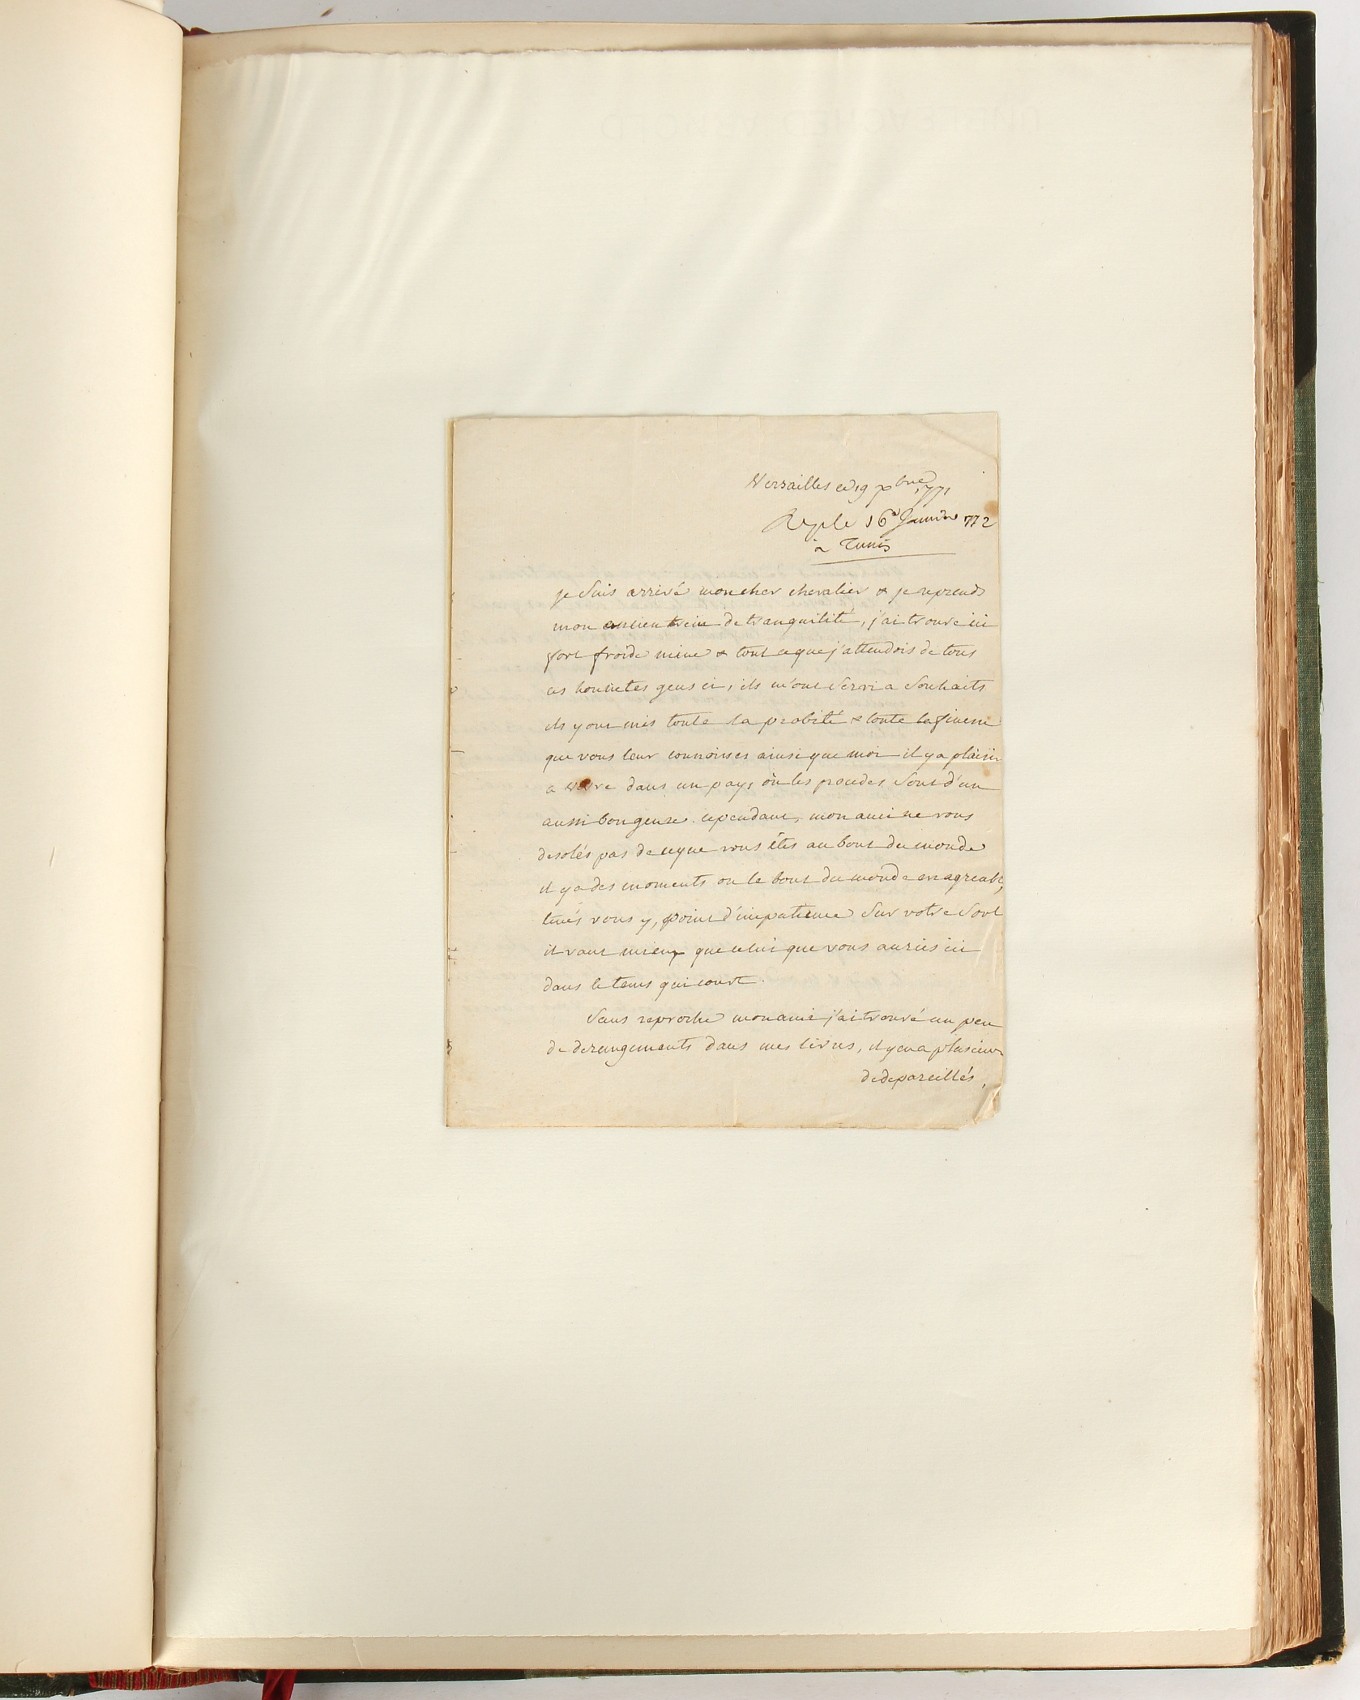 Versailles ce 19 xbre 1771
Rep le 16e Janvier 772
a Tunis
je suis arrivé mon cher chevalier & je reprends
mon ancien train de tranquilité, j'ai trouvé ici
fort froide mine & tout ce que j'attendois de tous
ces honnetes gens ci, ils m'ont servi a souhaits
ils y ont mis toute la probité & toute la finesse
que vous leur connoisses ainsi que moi il y a plaisir
a vivre dans un pays où les proudes sont d'un
aussi bon genre. cependant, mon ami ne vous
desolés pas de ce que vous êtes au bout du monde
il y a des moments ou le bout du monde est agreable,
tenés vous y, point d'impatience sur votre sort
il vaut mieux que celui que vous auriés ici
dans le tems qui court.
Sans reproche mon ami j'ai trouvé un peu
de derangements dans mes livres, il y en a plusieurs
de depareillés,